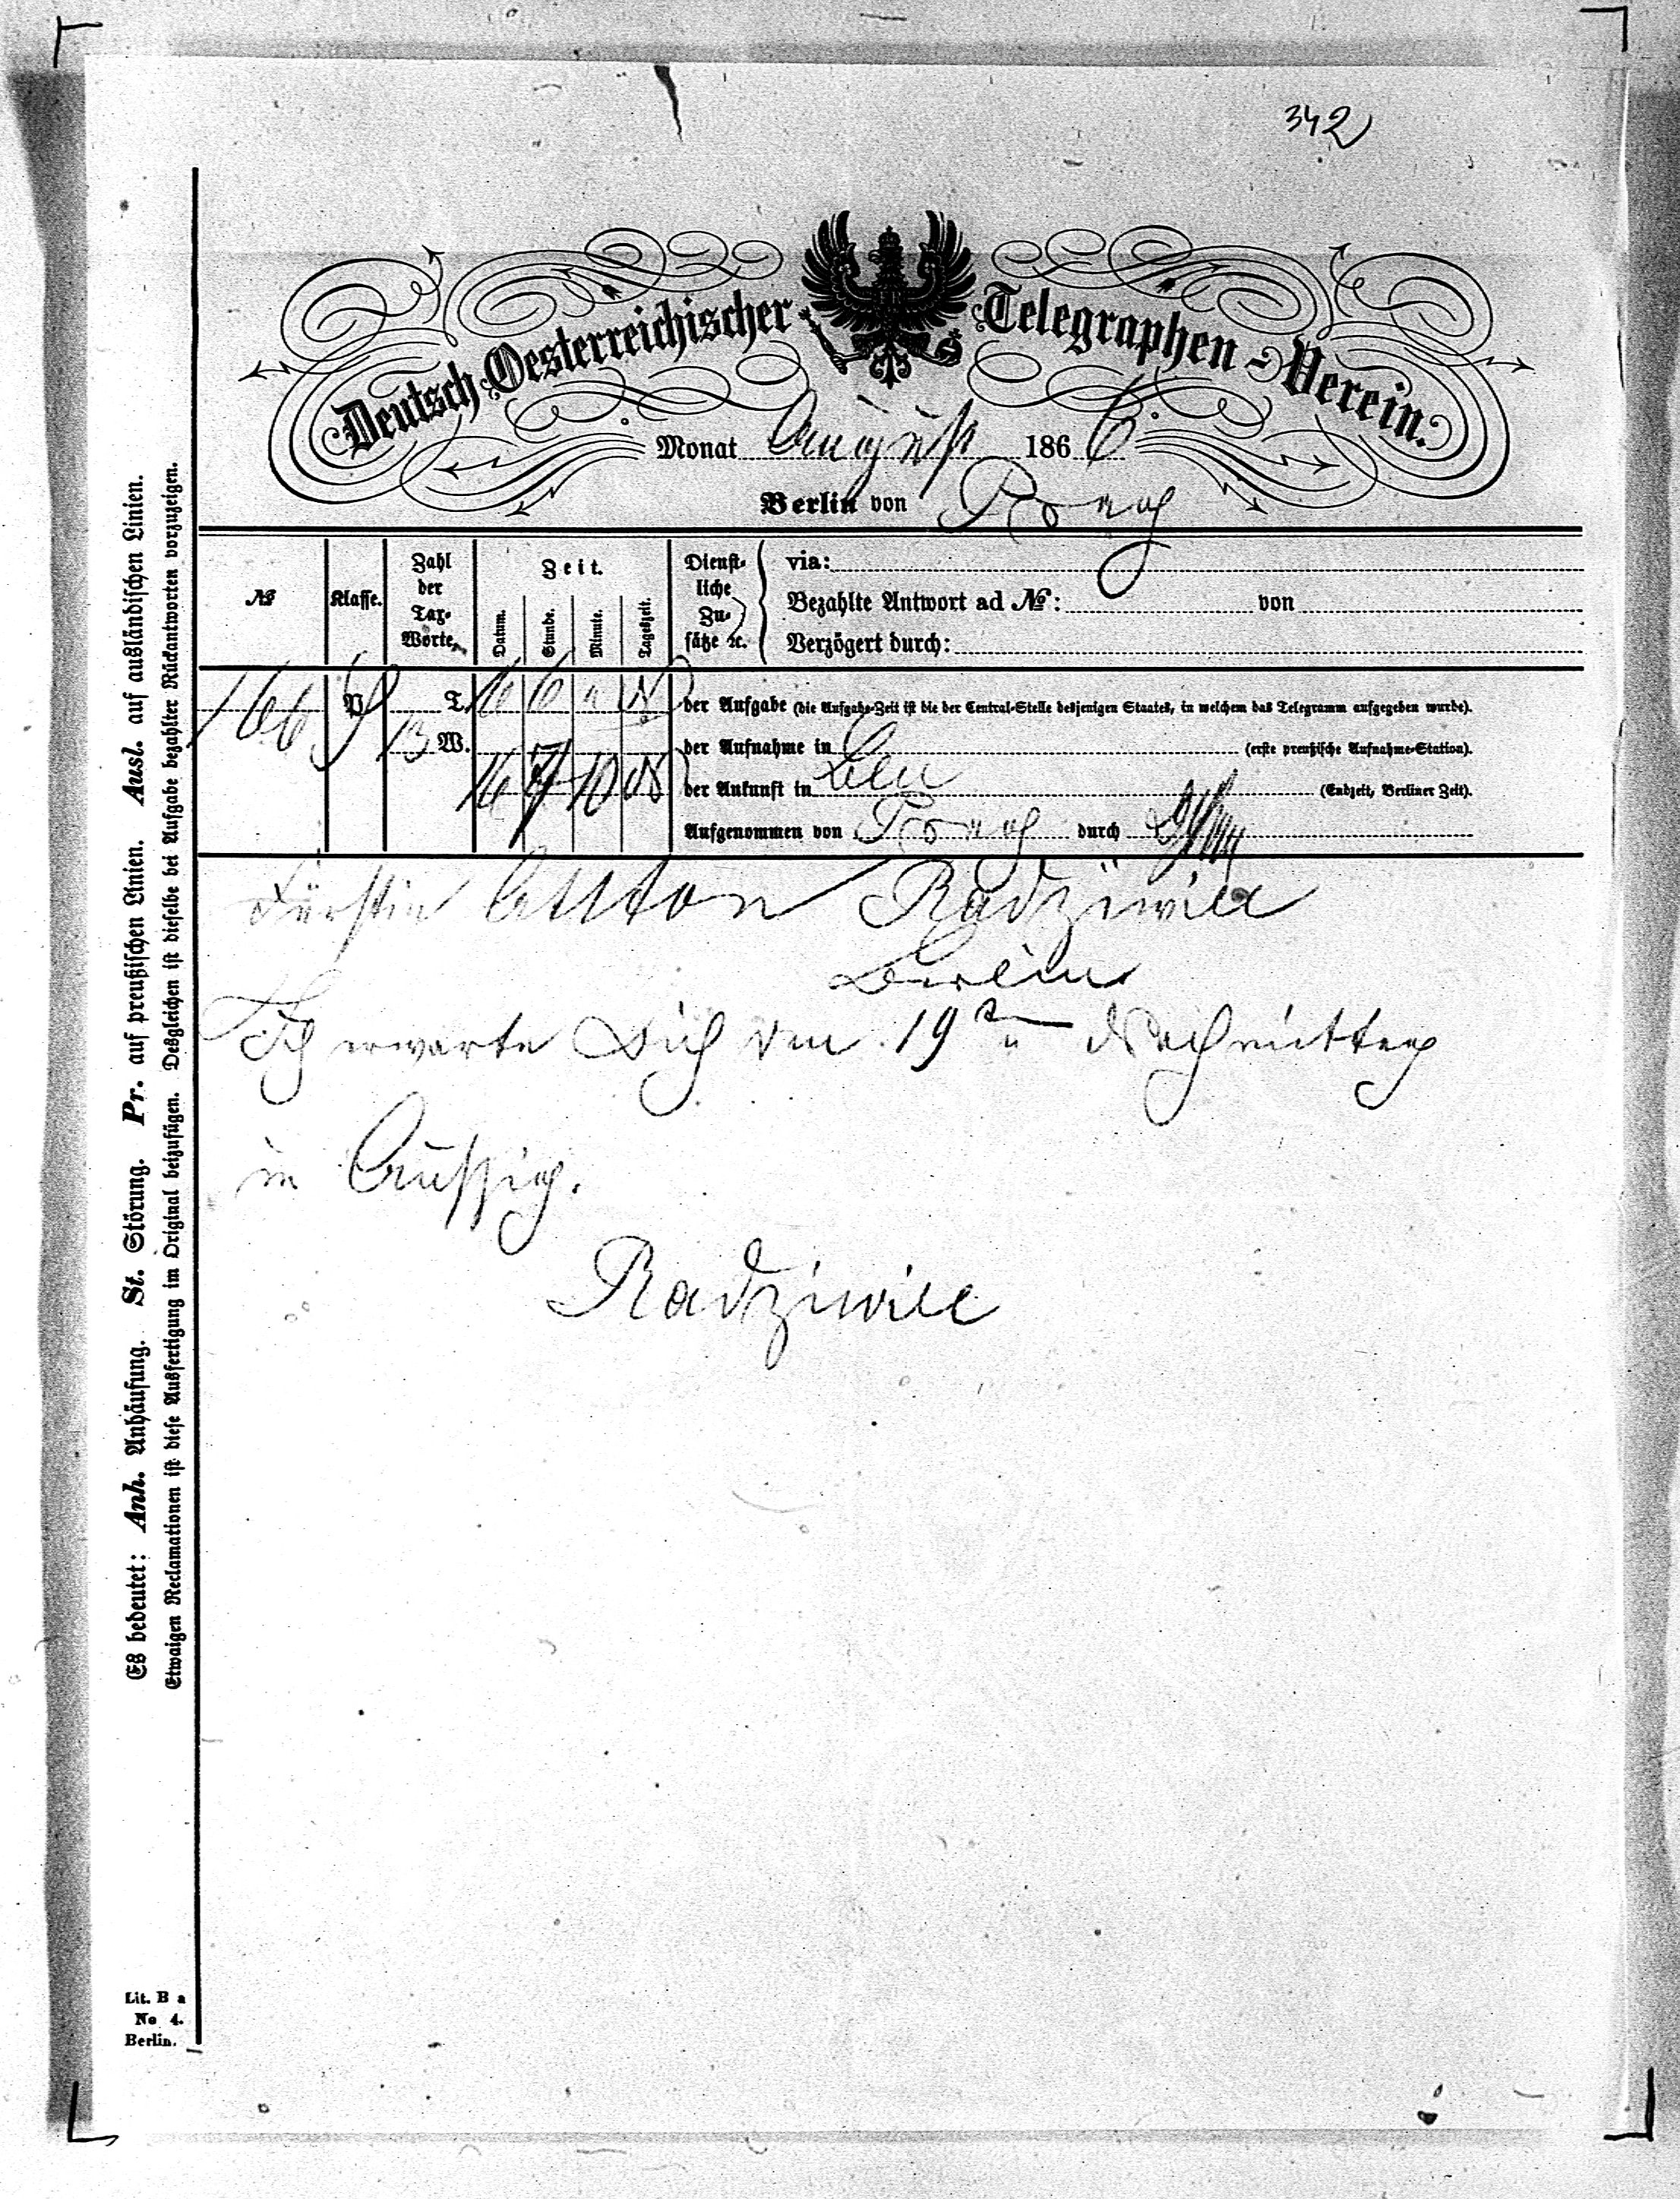 342
Deutsch-Oesterreichischer Telegraphen-Verein.
Monat August 1866.
Berlin von Prag
№
Klasse.
Zahl der Tax-Worte.
Zeit.
Datum. Stunde. Minute. Tageszeit.
Dienstliche Zusätze ꝛc.
via:
Bezahlte Antwort ad №: von
Verzögert durch:
166 P T. 16 6 N der Aufgabe (die Aufgabe-Zeit ist die der Central-Stelle desjenigen Staates, in welchem das Telegramm aufgegeben wurde).
13 W. der Aufnahme in (erste preußische Aufnahme-Station).
16 7 10 N der Ankunft in Bln (Endzeit, Berliner Zeit).
Aufgenommen von Prag durch
Fürstin Anton Radziwill
Berlin
Ich erwarte Dich den 19ten Nachmittag
in Aussig.
Radziwill
Es bedeutet: Anh. Anhäufung. St. Störung. Pr. auf preußischen Linien. Ausl. auf ausländischen Linien.
Etwaigen Reclamationen ist diese Ausfertigung im Original beizufügen. Desgleichen ist dieselbe bei Aufgabe bezahlter Rückantworten vorzuzeigen.
Lit. B a
No 4.
Berlin.